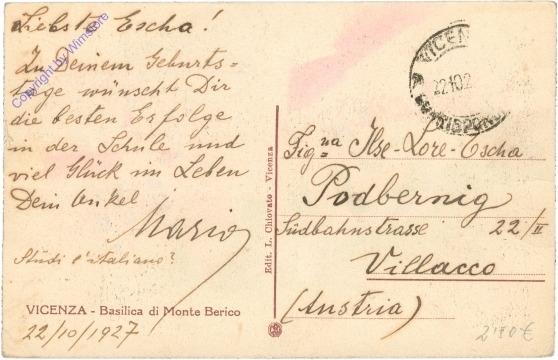 Liebste Escha!
Zu Deinem Geburts=
tage wünscht Dir
die besten Erfolge
in der Schule und
viel Glück im Leben
Dein Onkel
Mario
Studi l'italiano?
VICENZA - Basilica di Monte Berico
22/10/1927
Edit. L. Chiovato - Vicenza
VICEN
22.10.2
Sig.na Ilse-Lore-Escha
Podbernig
Südbahnstrasse 22/II
Villacco
(Austria)
2'50€
Copyright by Wimstore